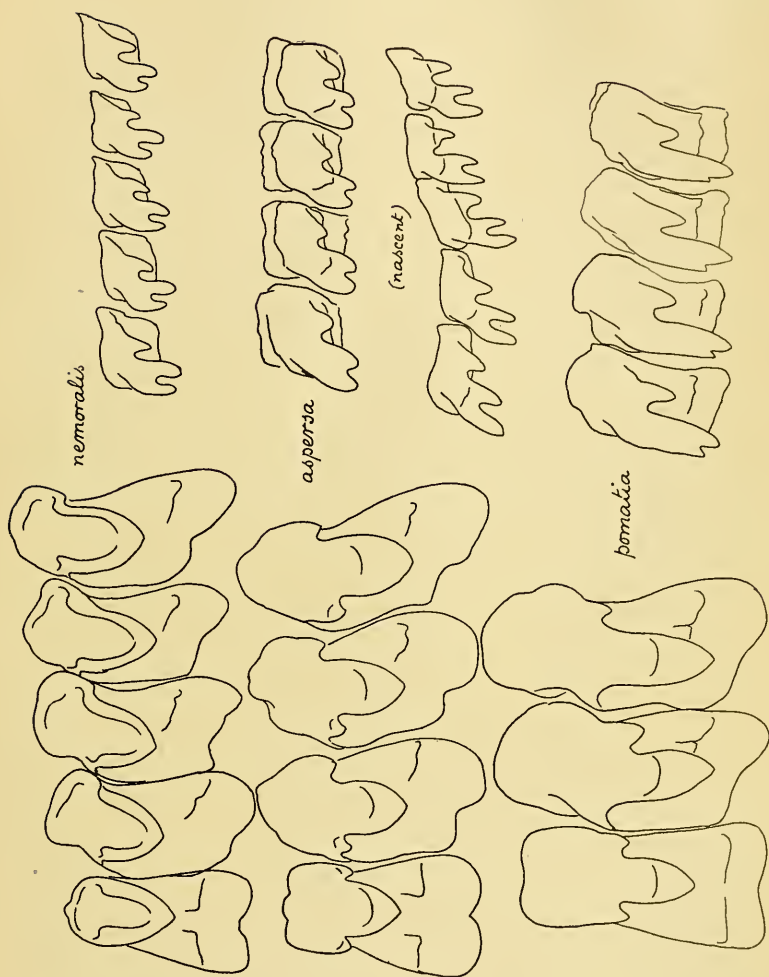 nemoralis
aspersa
(nascent)
pomatia